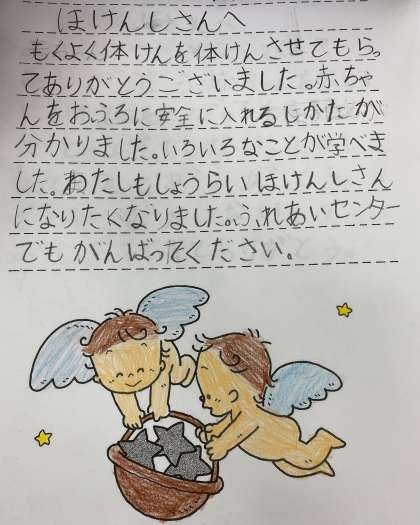 ほけんしさんへ
もくよく体けんを体けんさせてもらっ
てありがとうございました。赤ちゃ
んをおふろに安全に入れるしかたが
分かりました。いろいろなことが学べま
した。わたしもしょうらいほけんしさん
になりたくなりました。ふれあいセンター
でもがんばってください。